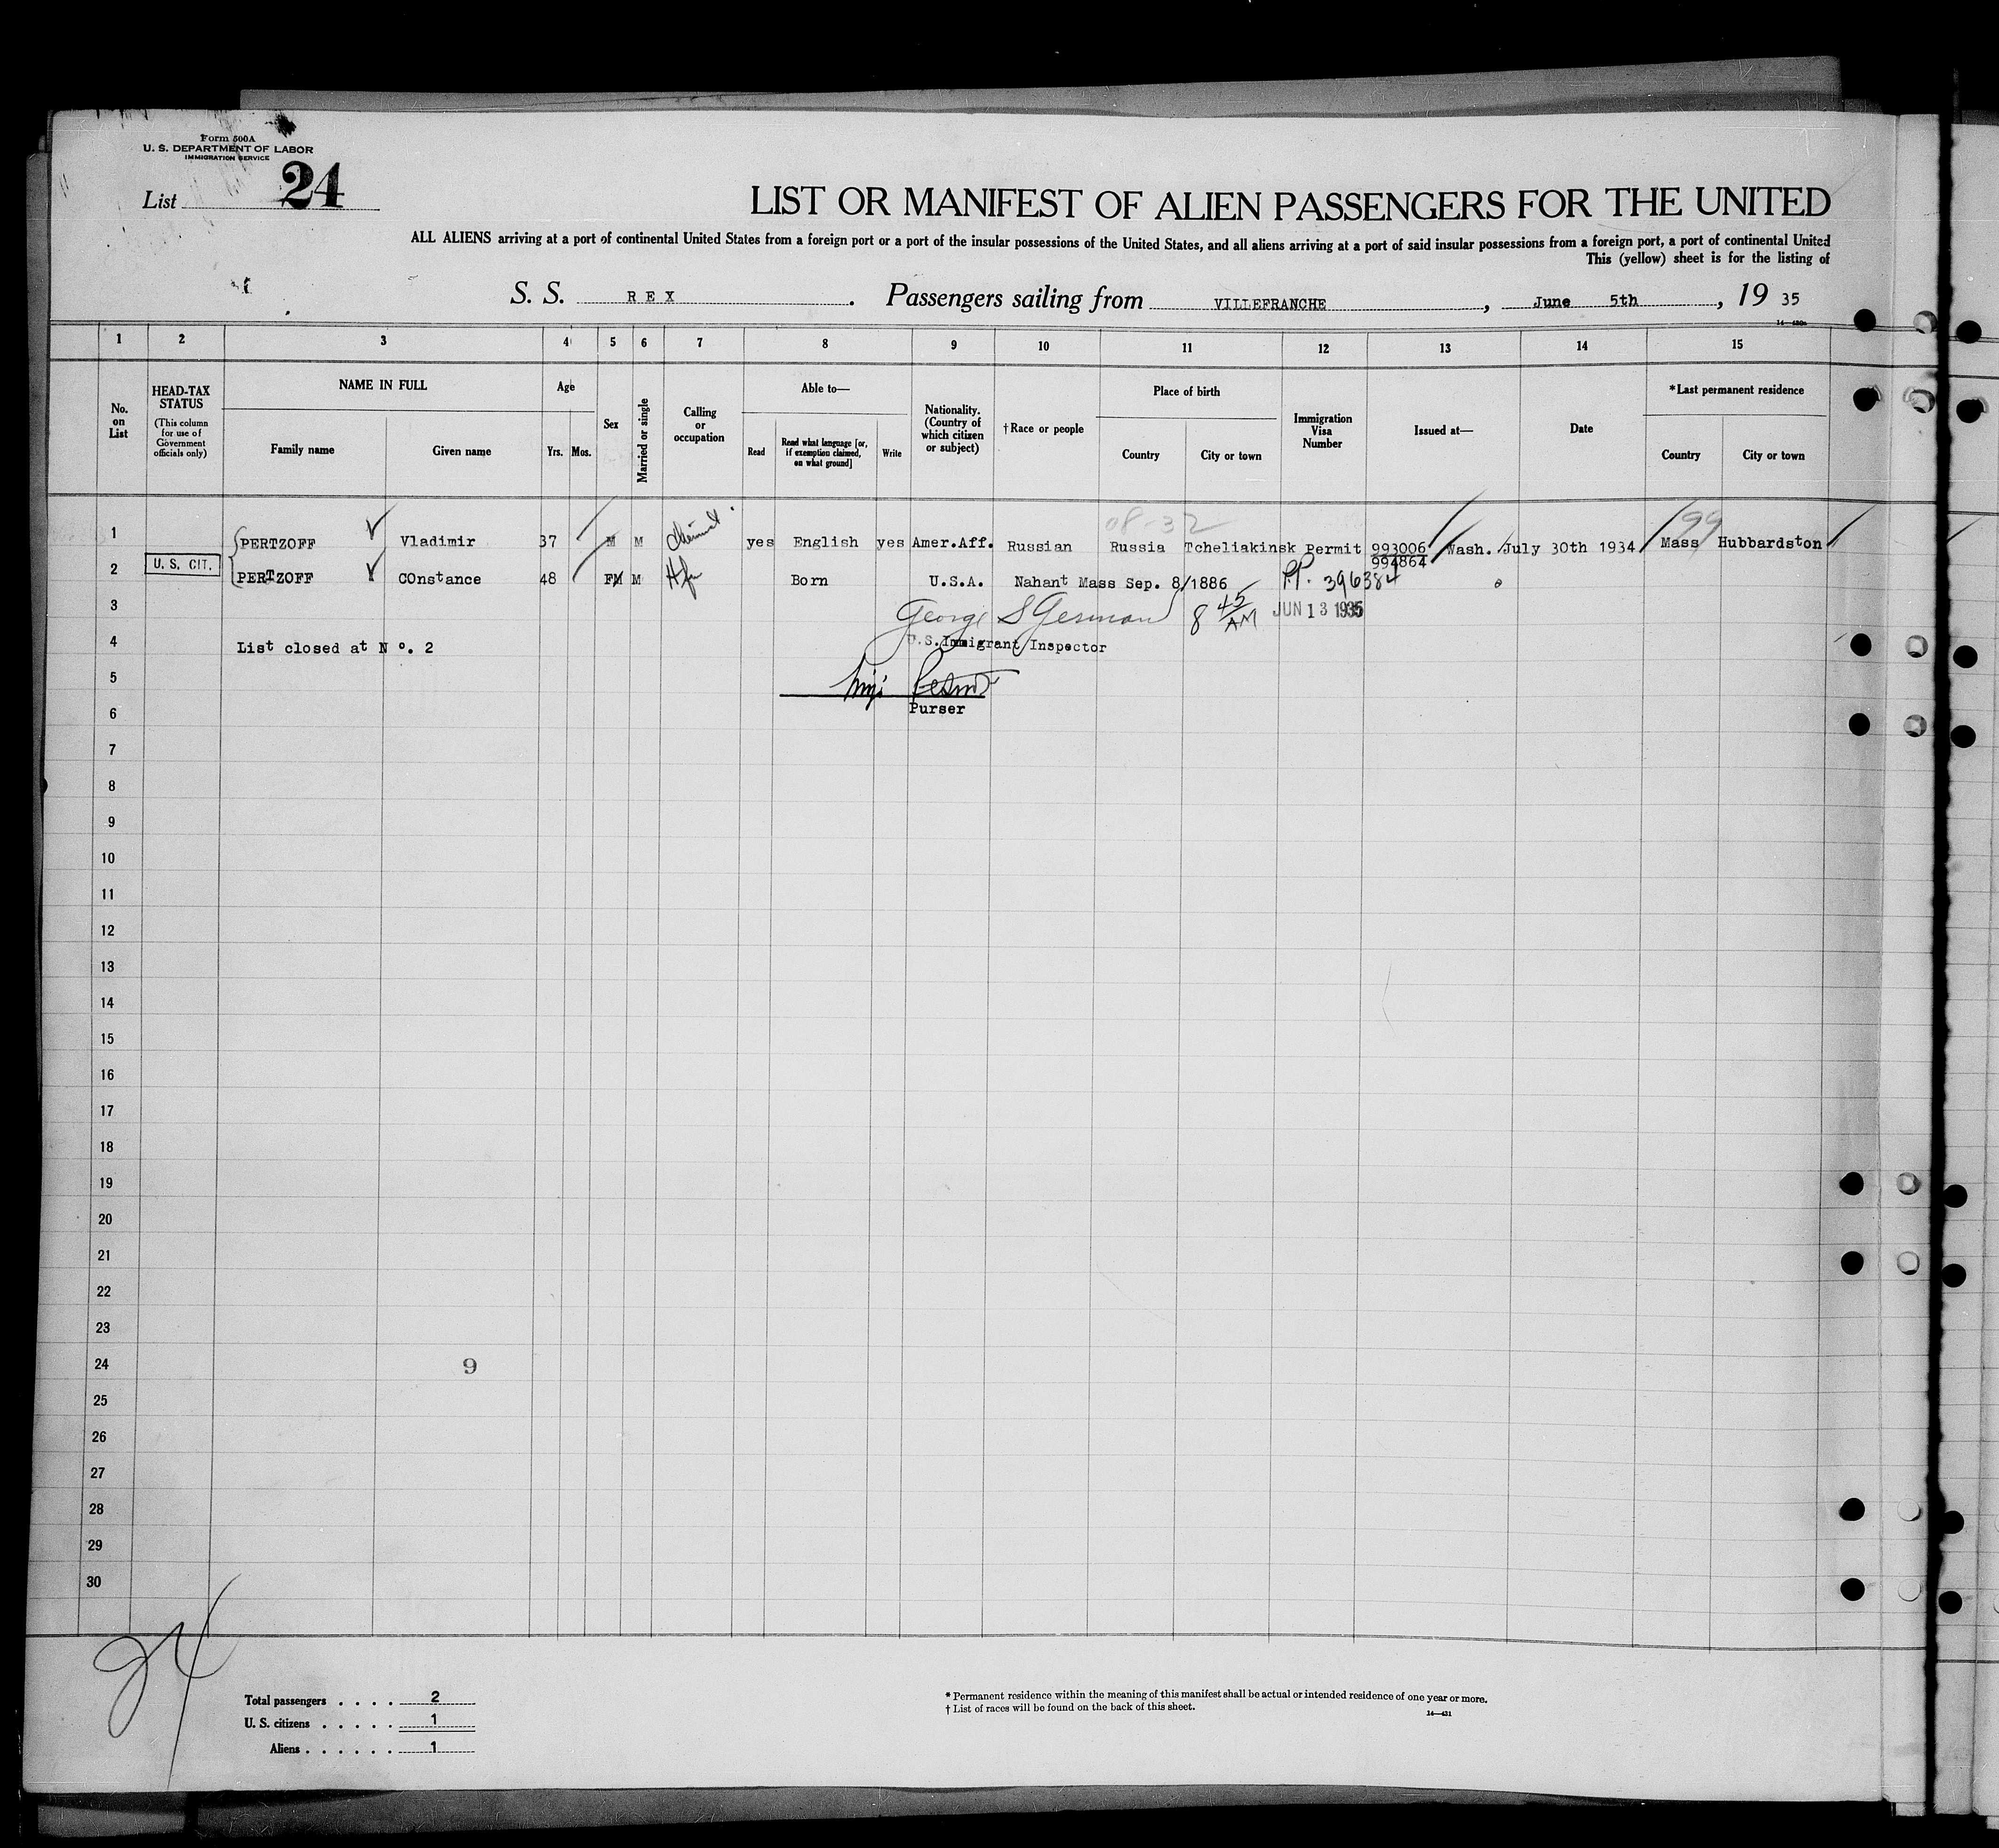 Form 500A
U. S. DEPARTMENT OF LABOR
IMMIGRATION SERVICE
List 24
LIST OR MANIFEST OF ALIEN PASSENGERS FOR THE UNITED
ALL ALIENS arriving at a port of continental United States from a foreign port or a port of the insular possessions of the United States, and all aliens arriving at a port of said insular possessions from a foreign port, a port of continental United
This (yellow) sheet is for the listing of
S. S. REX. Passengers sailing from VILLEFRANCHE, June 5th, 19 35
1 2 3 4 5 6 7 8 9 10 11 12 13 14 15
No. on List
HEAD-TAX STATUS
(This column for use of Government officials only)
NAME IN FULL
Family name Given name
Age
Yrs. Mos.
Sex
Married or single
Calling or occupation
Able to—
Read
Read what language [or, if exemption claimed, on what ground]
Write
Nationality. (Country of which citizen or subject)
†Race or people
Place of birth
Country City or town
Immigration Visa Number
Issued at—
Date
*Last permanent residence
Country City or town
08-32 99
1 PERTZOFF Vladimir 37 M M Chemist yes English yes Amer.Aff. Russian Russia Tcheliakinsk Permit 993006 Wash. July 30th 1934 Mass Hubbardston
994864
2 U. S. CIT. PERTZOFF COnstance 48 FM M Hfe Born U.S.A. Nahant Mass Sep. 8/1886 P.P. 396384
3 George S German 8 45 AM JUN 13 1935
4 List closed at N o. 2 U.S.Immigrant Inspector
5
6 Purser
7
8
9
10
11
12
13
14
15
16
17
18
19
20
21
22
23
24 9
25
26
27
28
29
30
24
Total passengers . . . . 2
U. S. citizens . . . . . 1
Aliens . . . . . . 1
* Permanent residence within the meaning of this manifest shall be actual or intended residence of one year or more.
† List of races will be found on the back of this sheet.
14—431